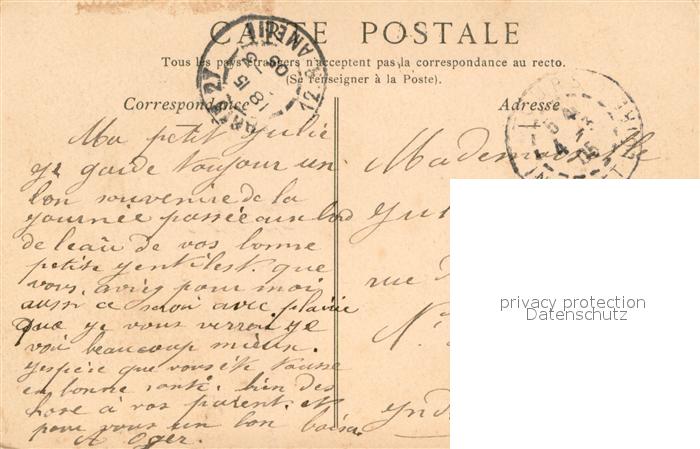 CARTE POSTALE
Tous les pays étrangers n'acceptent pas la correspondance au recto.
(Se renseigner à la Poste).
Correspondance
Adresse
Ma petit Julie
je garde toujour un
bon souvenire de la
journée passée au bord
de leau de vos bonne
petite jentilest. que
vous. aviés pour moi
aussi ce serai avec plaisir
que je vous verrou. je
voi beaucoup mieux.
jespére que vous éte tousse
en bonne santé. bien des
chose a vos parent. et
pour vous un bon baiser.
A Oger.
Mademoiselle
rue
privacy protection
Datenschutz